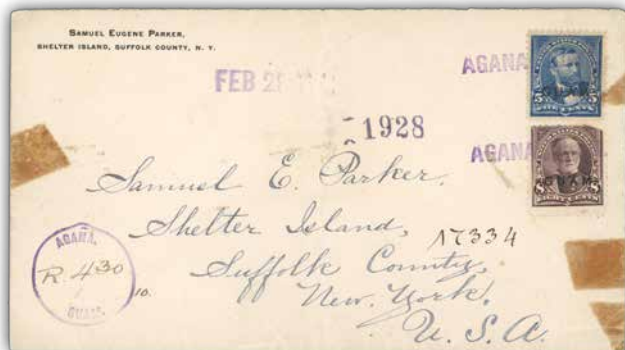 SAMUEL EUGENE PARKER,
SHELTER ISLAND, SUFFOLK COUNTY, N. Y.
FEB
AGANA
5 5
GUAM
1928
AGANA
8 8
GUAM
EIGHT CENTS
Samuel E. Parker,
Shelter Island,
17334
Suffolk County,
New. York.
U. S. A.
AGAÑA.
R. 430
GUAM.
10.